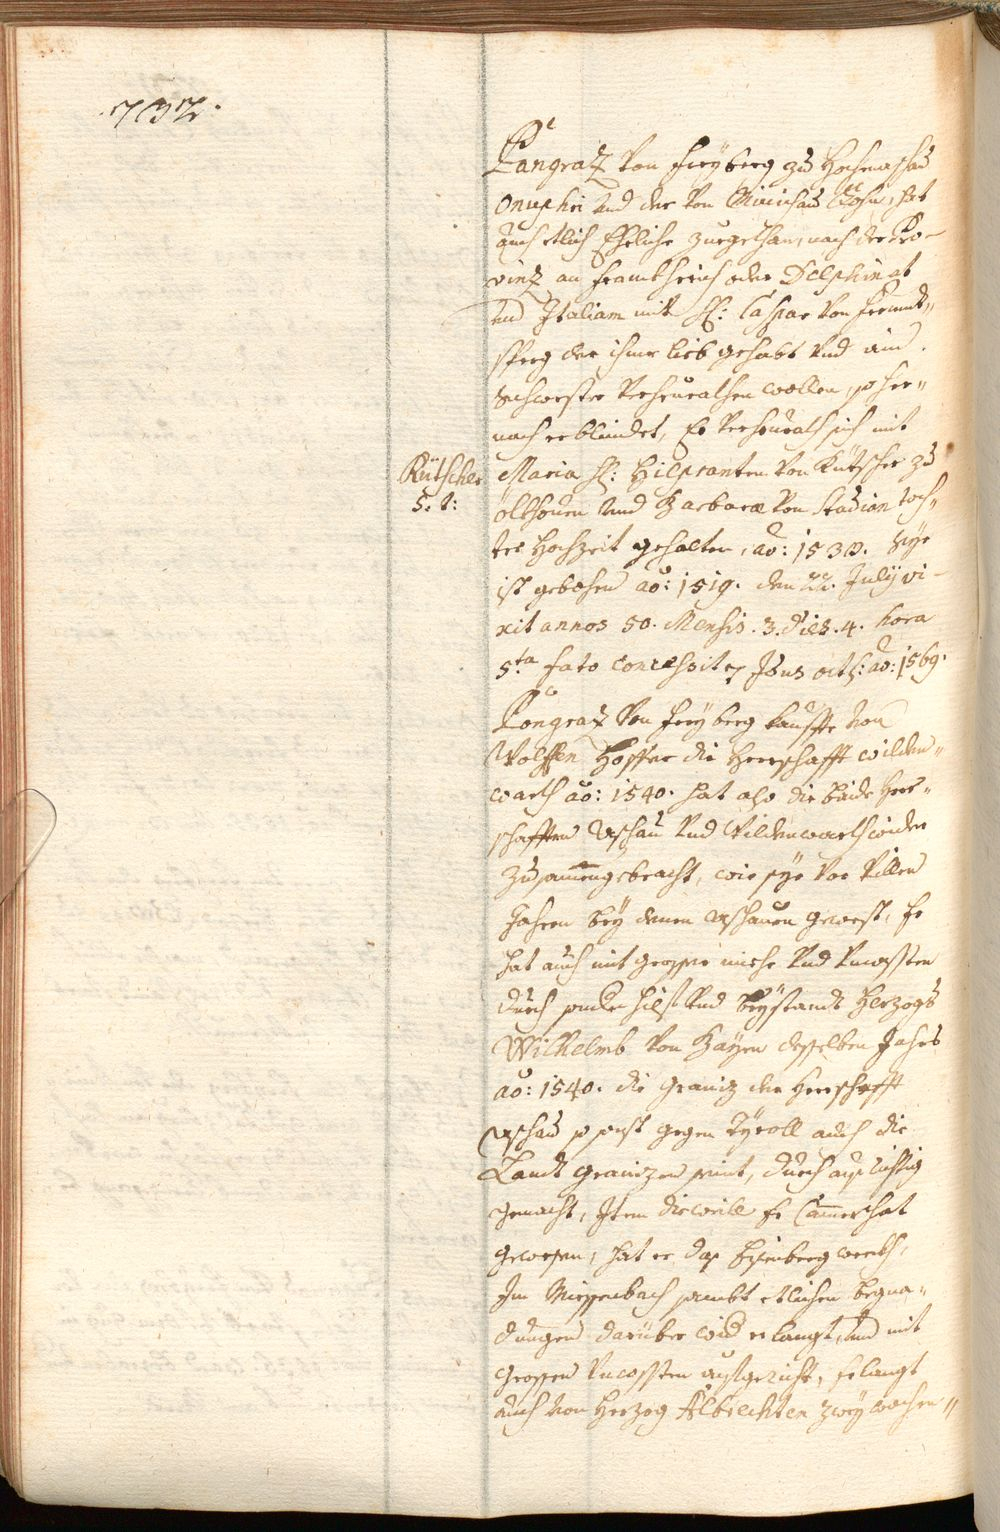 .732.
Pangratz von Freÿberg zu Hochenaschau
Onuphri und der von Münichau Sohn, hat
auch etlich Ehrliche Zueg gethan, nach der Pro-
vintz an Frankhreich oder Delphinat
und Italiam mit H: Caspar von Freundt„
sperg der ihme lieb gehabt und ein
Schwester verheurathen wollen, so her„
nach erblindet, Er verheurath sich mit
Kütscher
S. t:
Maria H: Hilpranten von Kütscher zu
ölkhouen und Barbaræ von Stadian toch„
ter Hochzeit gehalten, ao: 1530. Sÿe
ist gebohren ao: 1519. den 22. Julÿ vi-
xit annos 50. Mensis. 3. Dies. 4. hora
5.ta fato concessit 7 octb: ao: 1569.
Pongratz von Freÿberg kauffte von
Wolffen Hoffer die Herrschafft Wilden„
warth ao: 1540. hat also die baide Herr„
schafften Aschau und Wildenwarth wider
zusamengebracht, wie sÿe vor villen
Jahren beÿ denen Aschauern gewest, Er
hat auch mit grosser miehe und Uncossten
durch hilf und beÿstandt Herzogs
Wilhelmb von Baÿrn desselben Jahrs
ao: 1540. die Graniz der Herrschafft
Aschau sonst gegen Tÿroll auch die
Landt Granizen seint, durch aus richtig
gemacht, Item dieweill Er Camerrhat
gewesen, hat er das Eisenberg werckh,
Im Miessenbach sambt etlichen begna„
dungen darüber erlangt, und mit
grossen Uncossten aufgericht, Erlangt
auch von Herzog Albrechten zweÿ wochen„